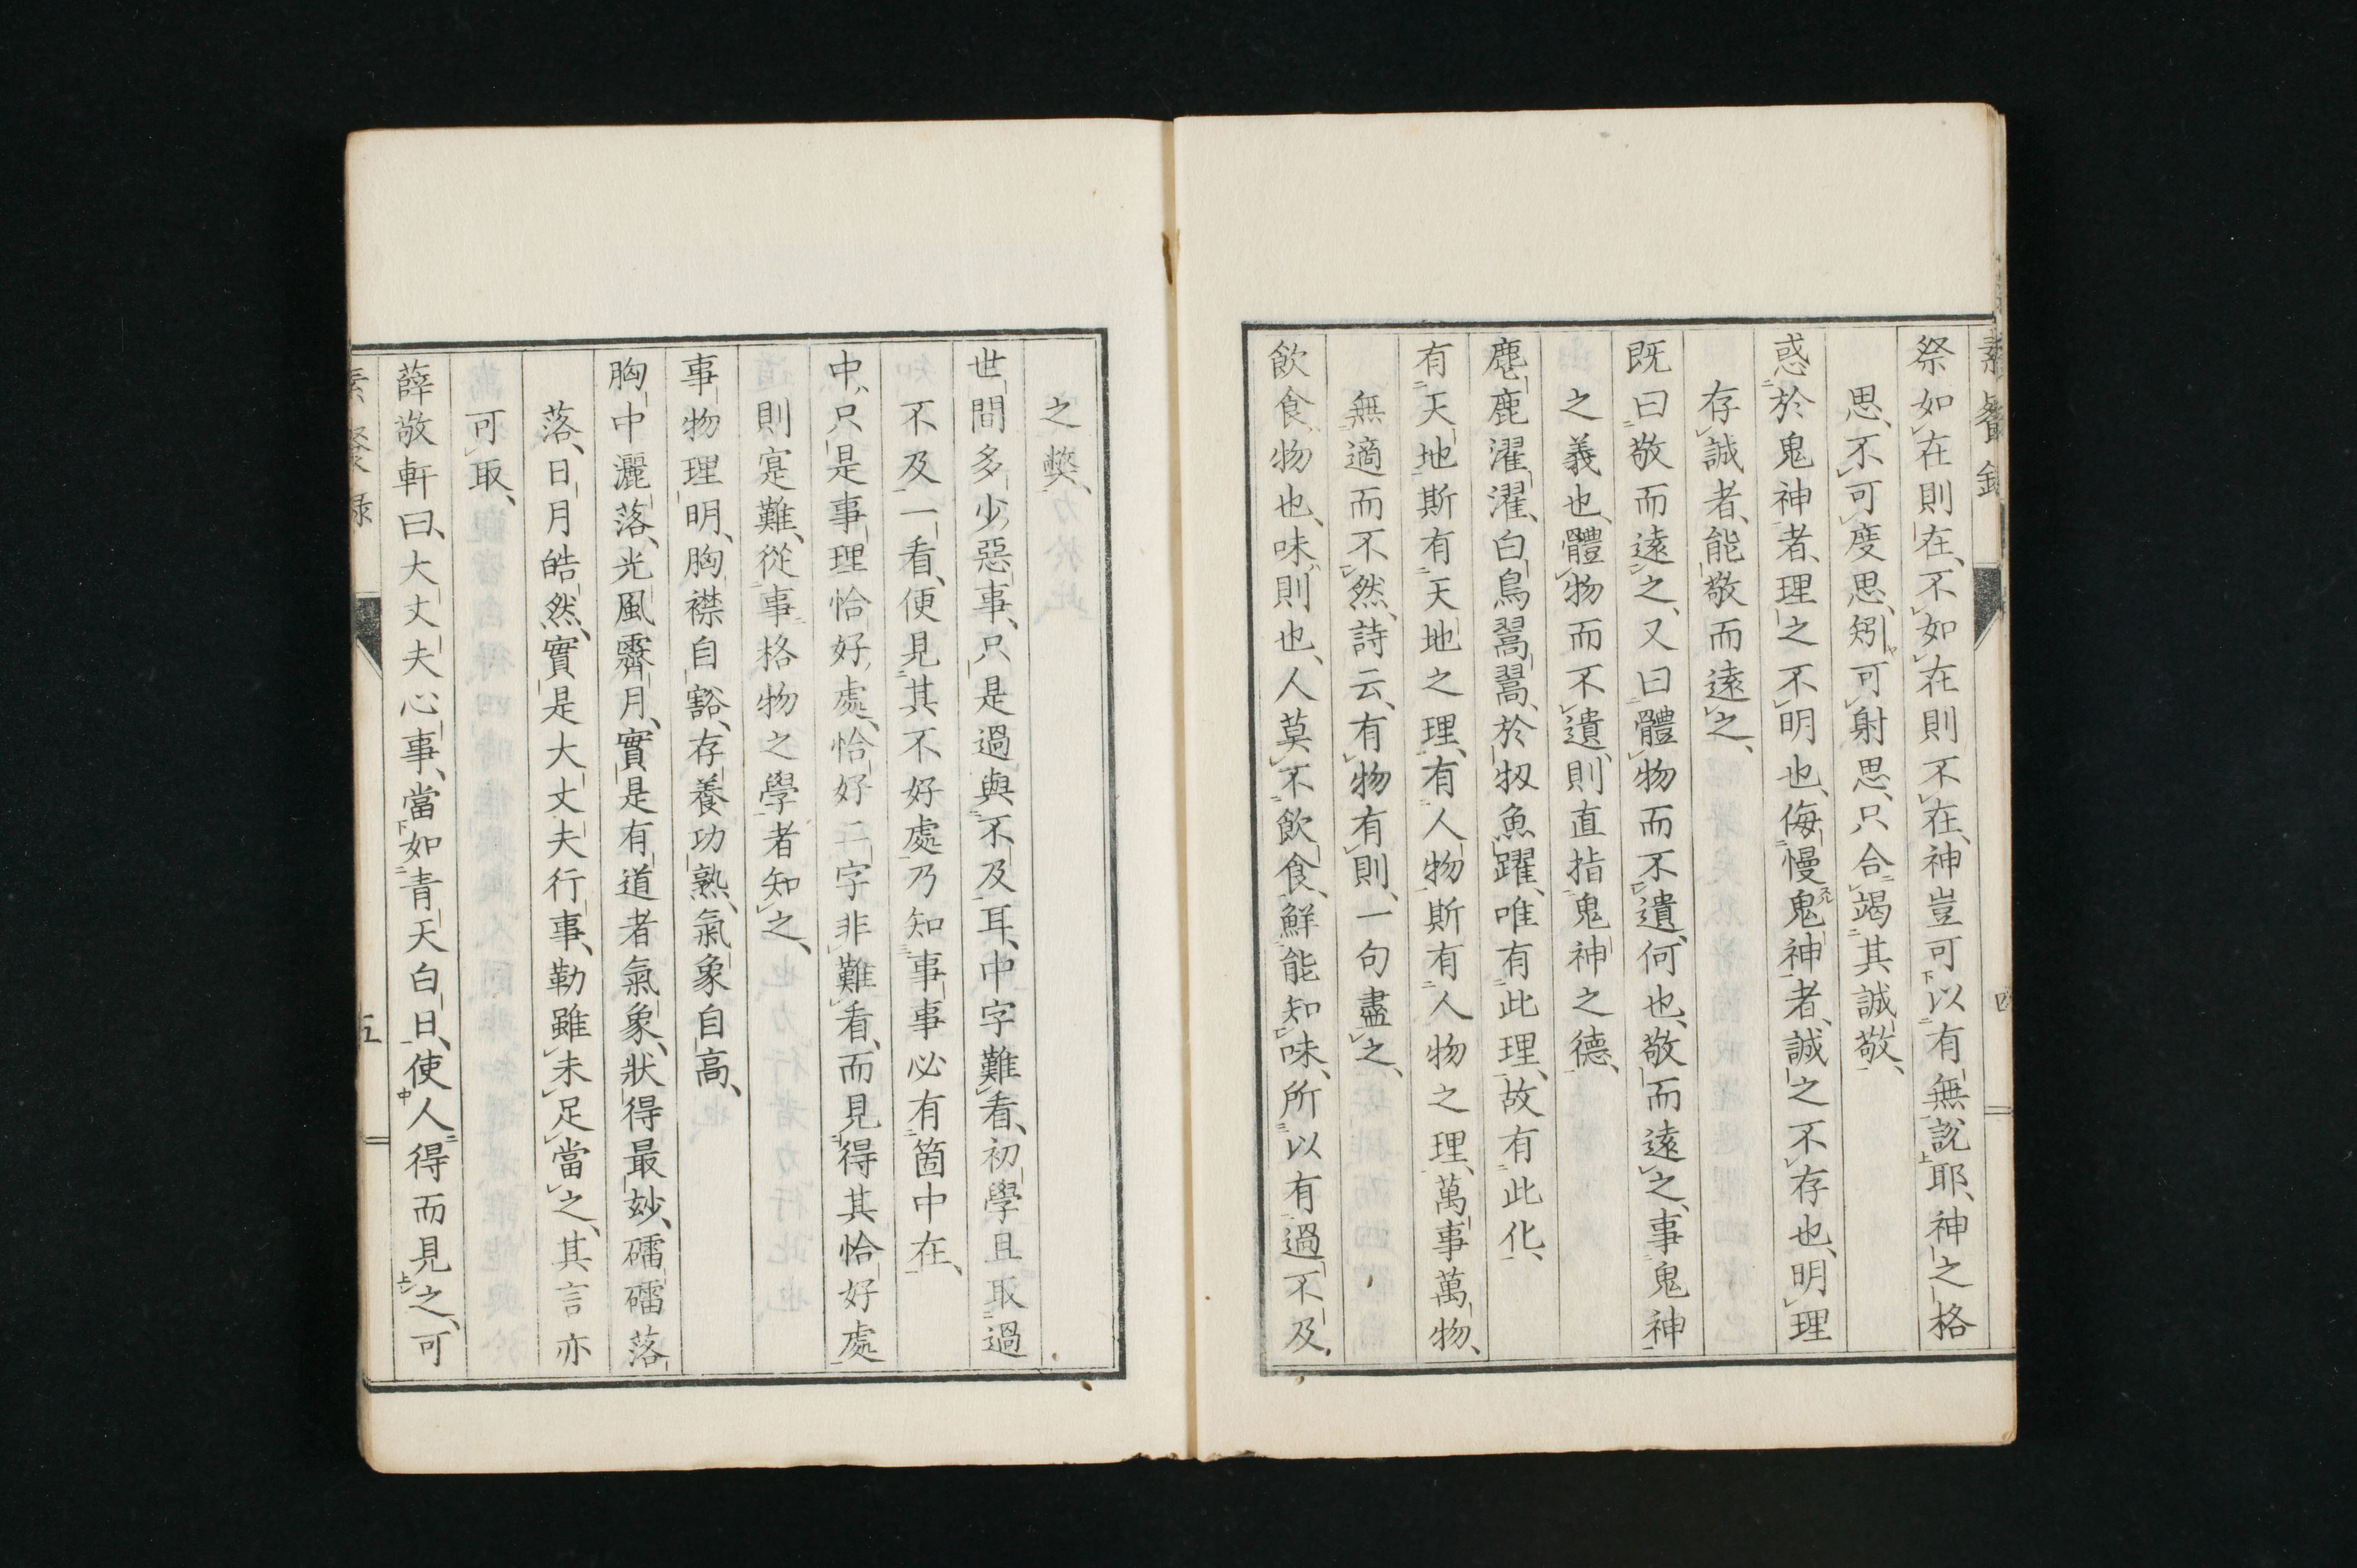 素餐録
四
祭如在則在、不如在則不在、神豈可以有無說耶、神之格
思、不可度思、矧可射思、只合竭其誠敬、
惑於鬼神者、理之不明也、侮慢鬼神者、誠之不存也、明理
存誠者、能敬而遠之、
既曰敬而遠之、又曰體物而不遺、何也、敬而遠之、事鬼神
之義也、體物而不遺、則直指鬼神之德、
麀鹿濯濯、白鳥翯翯、於牣魚躍、唯有此理、故有此化、
有天地斯有天地之理、有人物斯有人物之理、萬事萬物、
無適而不然、詩云、有物有則、一句盡之、
飲食物也、味則也、人莫不飲食、鮮能知味、所以有過不及
之弊、
世間多少惡事、只是過與不及耳、中字難看、初學且取過
不及一看、便見其不好處、乃知事事必有箇中在、
中、只是事理恰好處、恰好二字非難看、而見得其恰好處
則寔難、從事格物之學者知之、
事物理明、胸襟自豁、存養功熟、氣象自高、
胸中灑落、光風霽月、實是有道者氣象、狀得最妙、礌礌落
落、日月皓然、實是大丈夫行事、勒雖未足當之、其言亦
可取、
薛敬軒曰、大丈夫心事、當如青天白日、使人得而見之、可
素餐録
五